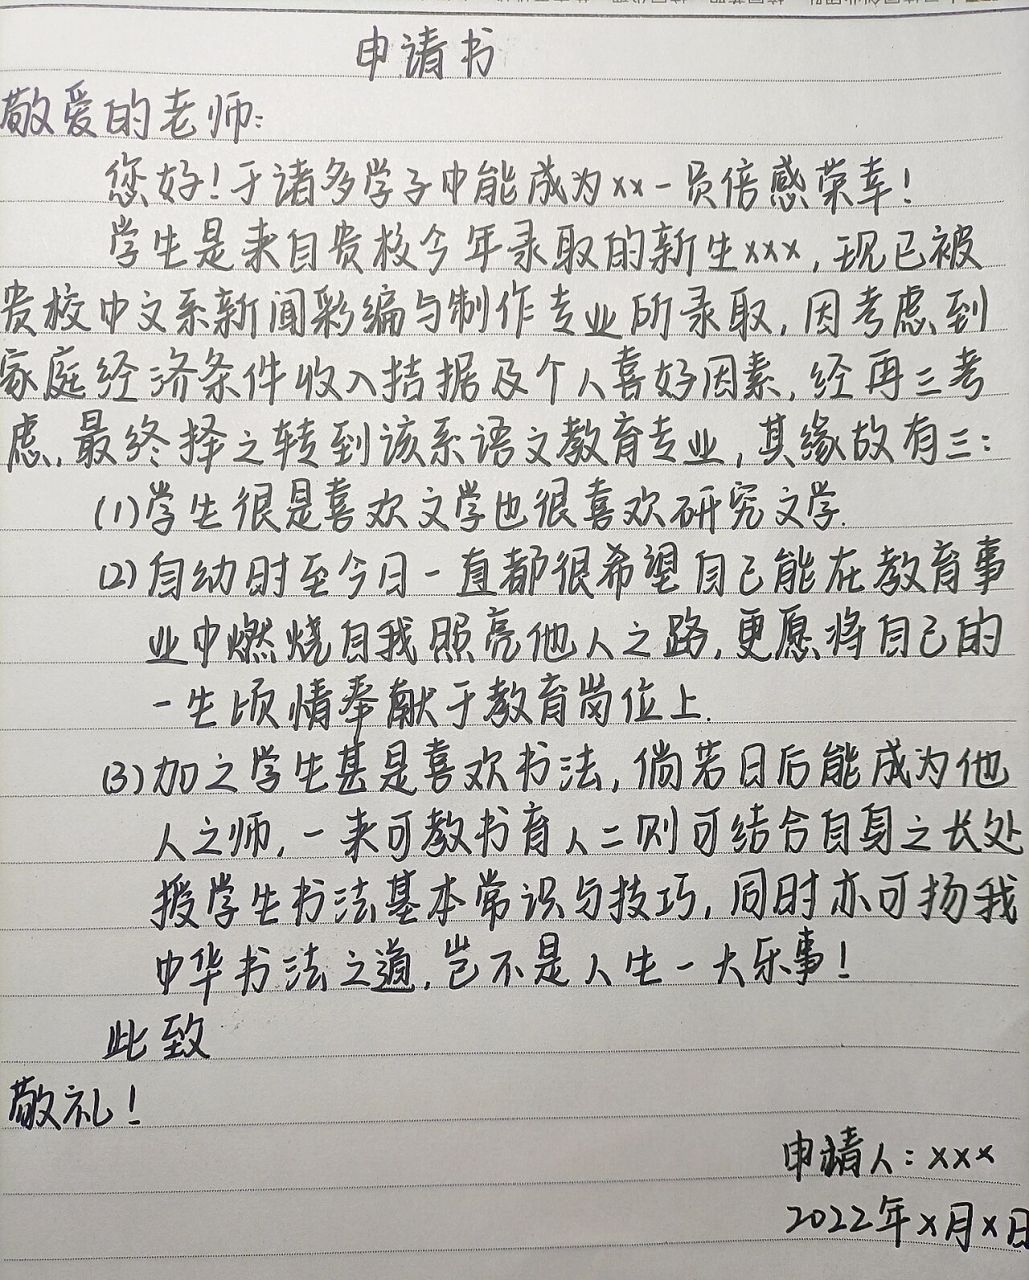 申请书
敬爱的老师:
您好!于诸多学子中能成为xx一员倍感荣幸!
学生是来自贵校今年录取的新生xxx,现已被
贵校中文系新闻彩编与制作专业所录取,因考虑到
家庭经济条件收入拮据及个人喜好因素,经再三考
虑,最终择之转到该系语文教育专业,其缘故有三:
(1)学生很是喜欢文学也很喜欢研究文学.
(2)自幼时至今日一直都很希望自己能在教育事
业中燃烧自我照亮他人之路,更愿将自己的
一生倾情奉献于教育岗位上.
(3)加之学生甚是喜欢书法,倘若日后能成为他
人之师,一来可教书育人二则可结合自身之长处
授学生书法基本常识与技巧,同时亦可扬我
中华书法之道,岂不是人生一大乐事!
此致
敬礼!
申请人:xxx
2022年x月x日